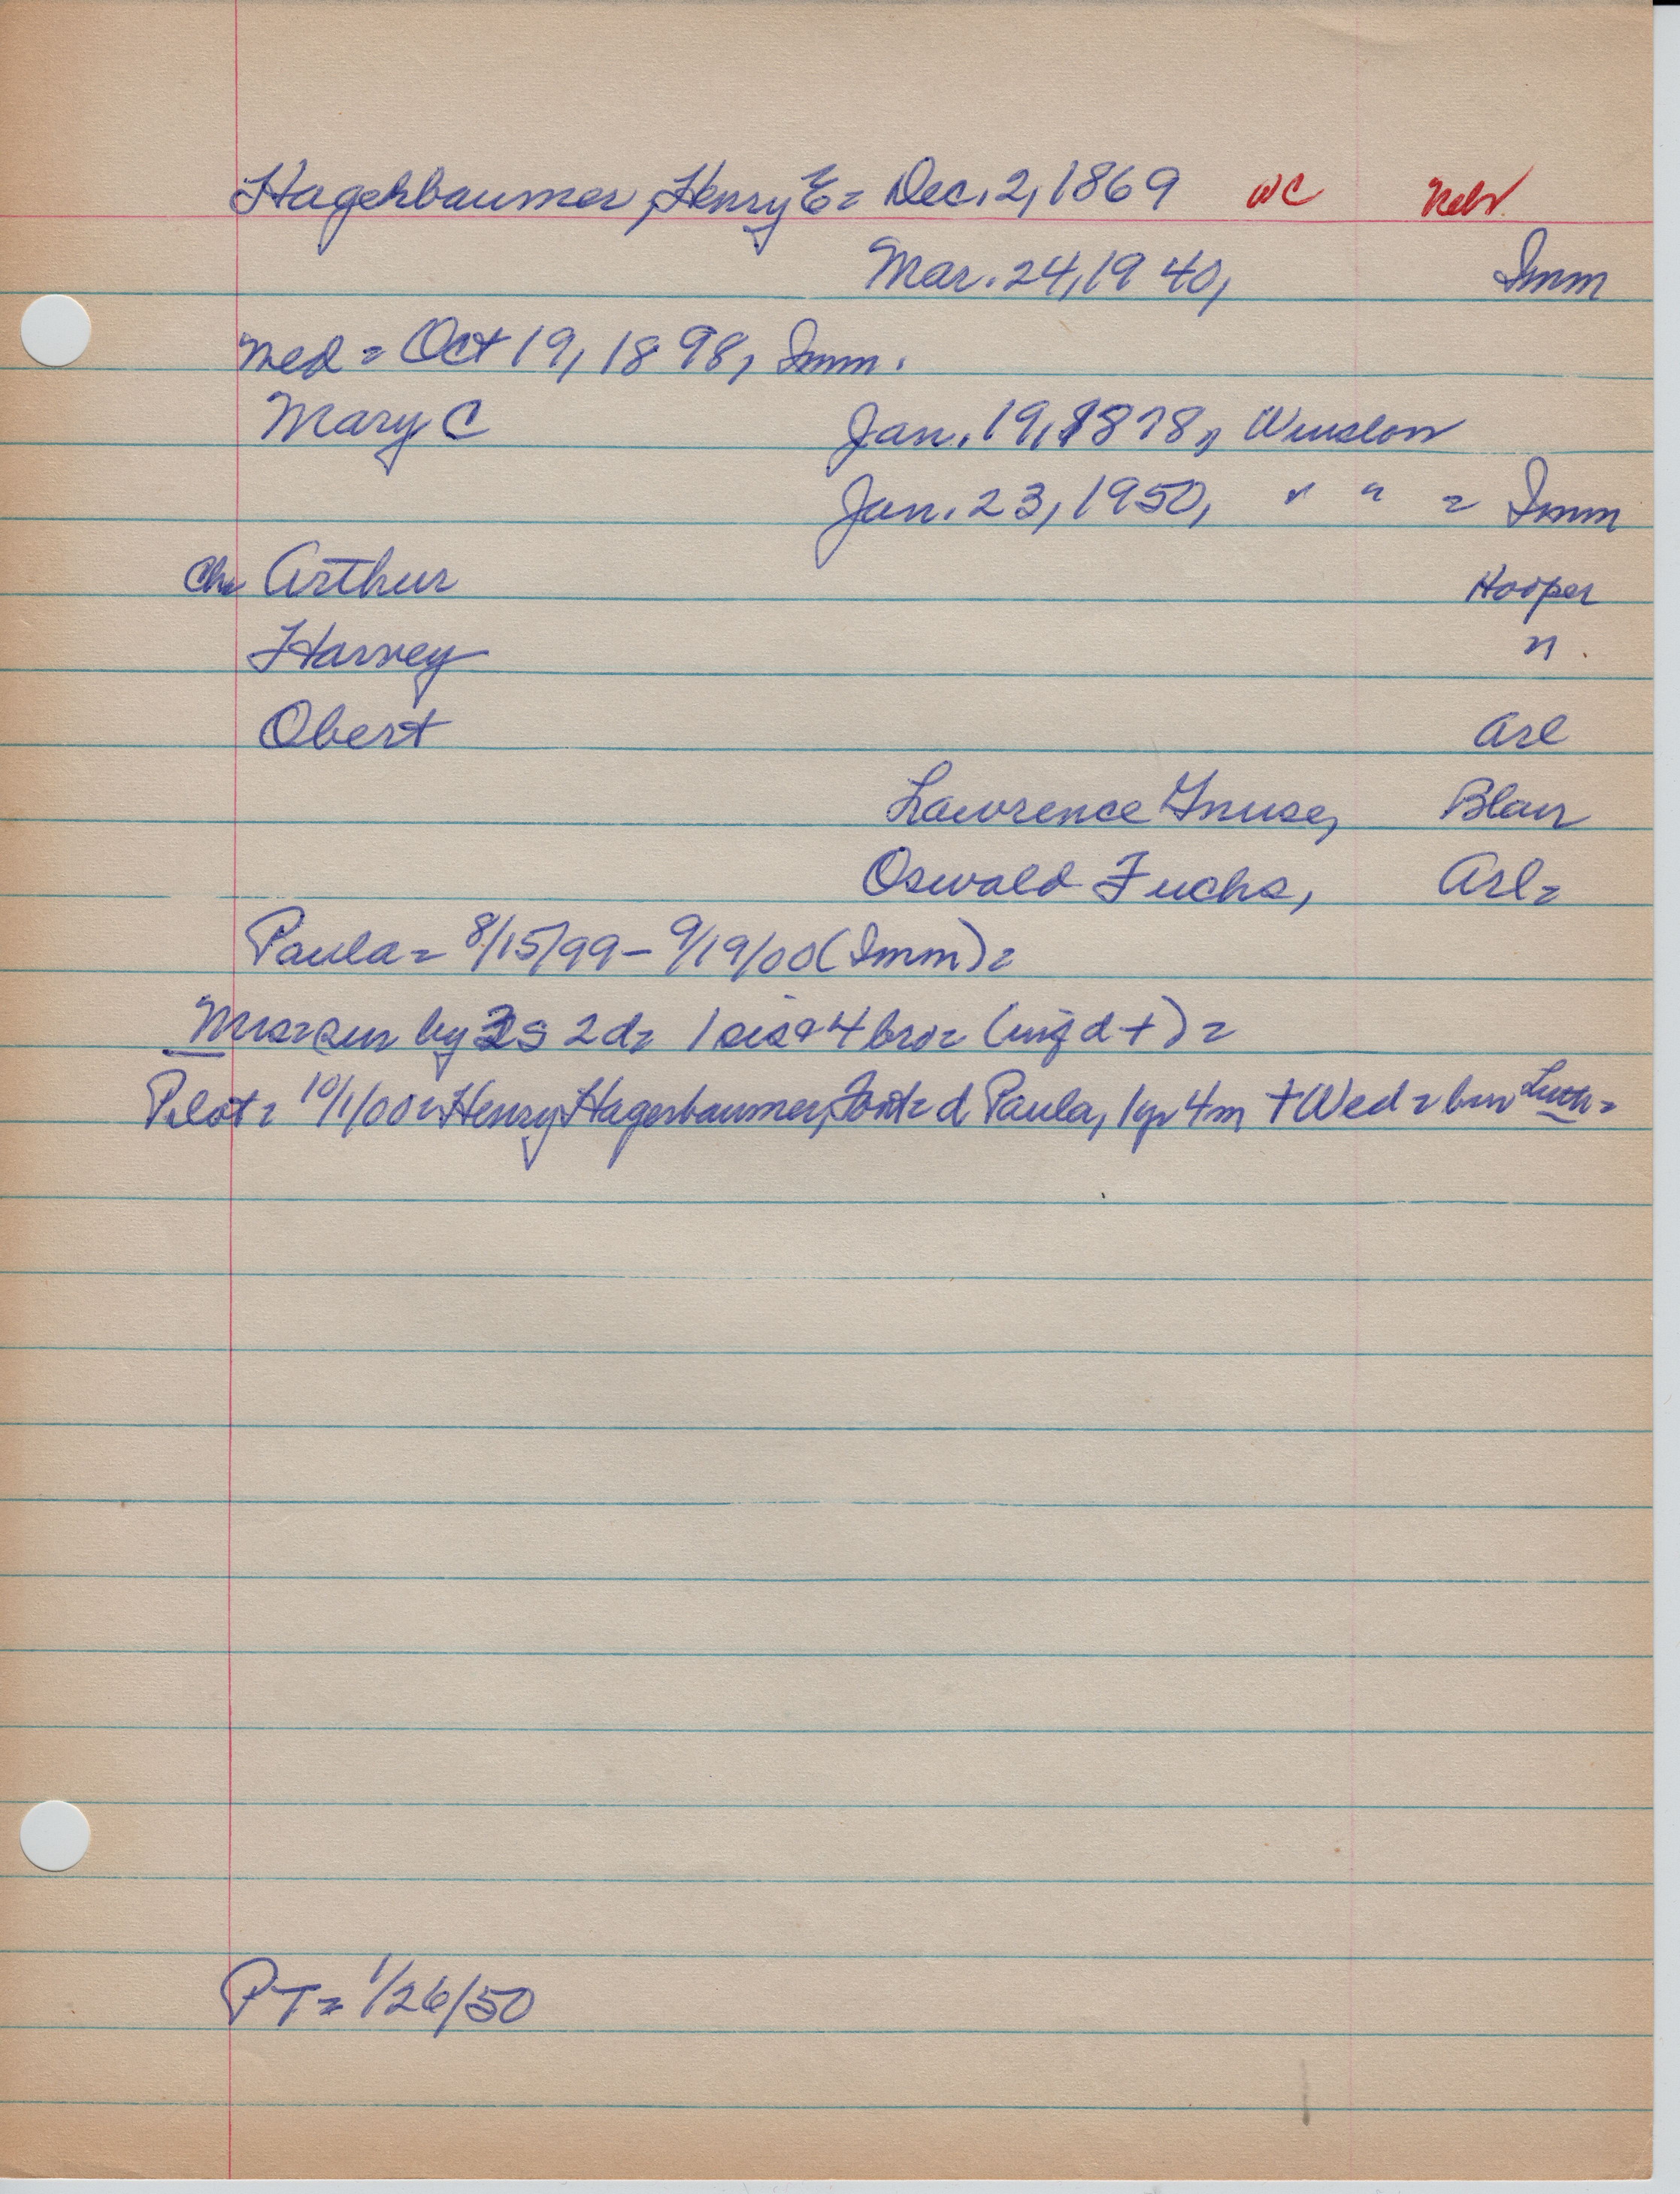 Hagenbaumer, Henry E = Dec. 2, 1869 WC Nebr
Mar. 24, 1940, Imm
Med = Oct 19, 1898, Imm.
Mary C Jan. 19, 1878, Winslow
Jan. 23, 1950, " " = Imm
Ch= Arthur Hooper
Harvey "
Obert Arl
Lawrence Gnuse, Blair
Oswald Fuchs, Arl=
Paula = 8/15/99 - 9/19/00 (Imm) =
Mrs = sur by 3s 2d = 1 sis + 4 bro = (inf d +) =
Pilot = 10/1/00 = Henry Hagenbaumer, Font = d Paula, 1 yr 4m + Wed = bur Luth =
PT = 1/26/50